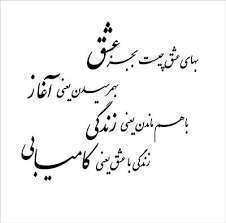 بهای عشق چیست بجز عشق
بهم رسیدن یعنی آغاز
باهم ماندن یعنی زندگی
زندگی با عشق یعنی کامیابی